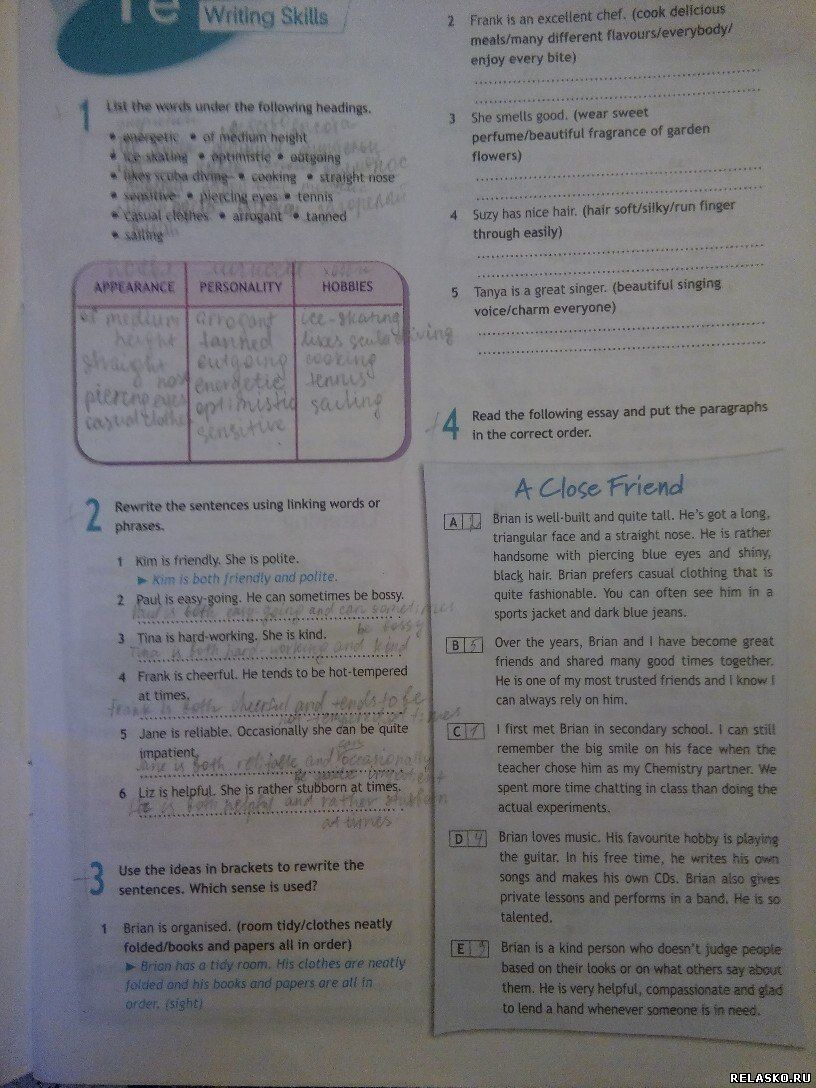 1e Writing Skills
1 List the words under the following headings.
• energetic • of medium height
• ice skating • optimistic • outgoing
• likes scuba diving • cooking • straight nose
• sensitive • piercing eyes • tennis
• casual clothes • arrogant • tanned
• sailing
APPEARANCE PERSONALITY HOBBIES
of medium arrogant ice-skating
height tanned likes scuba diving
straight outgoing cooking
nose energetic tennis
piercing eyes optimistic sailing
casual clothes sensitive
2 Rewrite the sentences using linking words or
phrases.
1 Kim is friendly. She is polite.
► Kim is both friendly and polite.
2 Paul is easy-going. He can sometimes be bossy.
Paul is both easy-going and can sometimes
be bossy
3 Tina is hard-working. She is kind.
Tina is both hard-working and kind
4 Frank is cheerful. He tends to be hot-tempered
at times.
Frank is both cheerful and tends to be
hot-tempered at times
5 Jane is reliable. Occasionally she can be quite
impatient.
Jane is both reliable and occasionally
can be quite impatient
6 Liz is helpful. She is rather stubborn at times.
Liz is both helpful and rather stubborn
at times
3 Use the ideas in brackets to rewrite the
sentences. Which sense is used?
1 Brian is organised. (room tidy/clothes neatly
folded/books and papers all in order)
► Brian has a tidy room. His clothes are neatly
folded and his books and papers are all in
order. (sight)
2 Frank is an excellent chef. (cook delicious
meals/many different flavours/everybody/
enjoy every bite)
3 She smells good. (wear sweet
perfume/beautiful fragrance of garden
flowers)
4 Suzy has nice hair. (hair soft/silky/run finger
through easily)
5 Tanya is a great singer. (beautiful singing
voice/charm everyone)
4 Read the following essay and put the paragraphs
in the correct order.
A Close Friend
A Brian is well-built and quite tall. He's got a long,
triangular face and a straight nose. He is rather
handsome with piercing blue eyes and shiny,
black hair. Brian prefers casual clothing that is
quite fashionable. You can often see him in a
sports jacket and dark blue jeans.
B 5 Over the years, Brian and I have become great
friends and shared many good times together.
He is one of my most trusted friends and I know I
can always rely on him.
C 1 I first met Brian in secondary school. I can still
remember the big smile on his face when the
teacher chose him as my Chemistry partner. We
spent more time chatting in class than doing the
actual experiments.
D 4 Brian loves music. His favourite hobby is playing
the guitar. In his free time, he writes his own
songs and makes his own CDs. Brian also gives
private lessons and performs in a band. He is so
talented.
E 3 Brian is a kind person who doesn't judge people
based on their looks or on what others say about
them. He is very helpful, compassionate and glad
to lend a hand whenever someone is in need.
RELASKO.RU